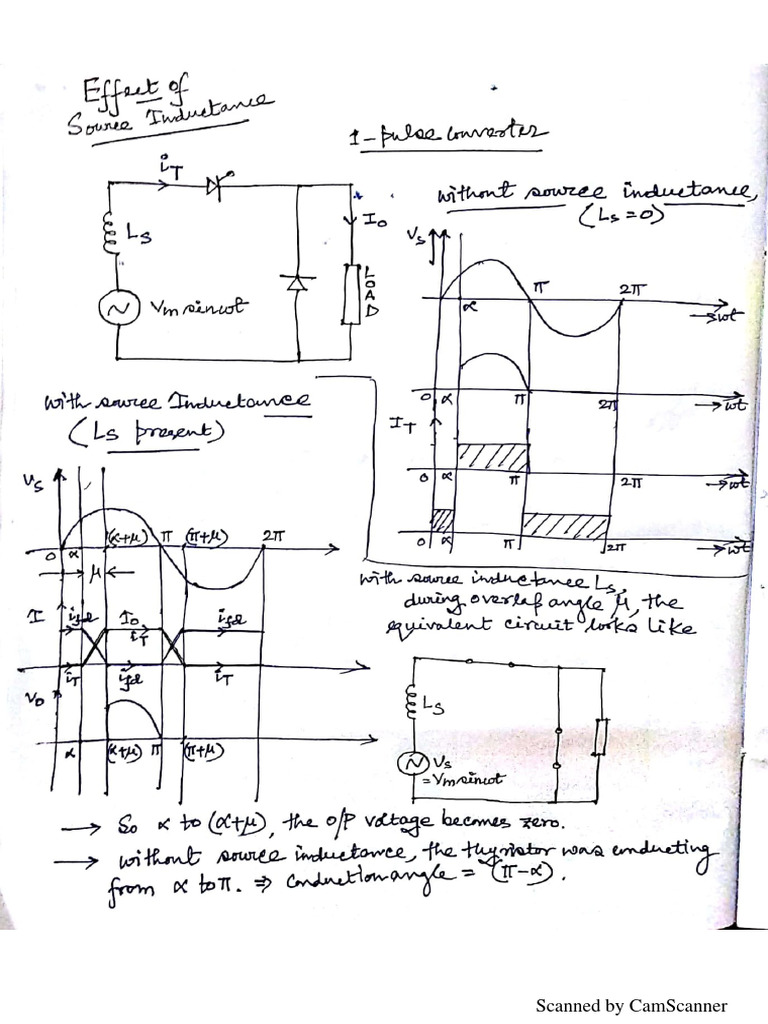 Effect of
Source Inductance
1-pulse converter
iT
Ls
Vm sinωt
Io
LOAD
without source inductance,
(Ls=0)
Vs
α
π
2π
→ωt
0 α π 2π →ωt
IT
0 α π 2π →ωt
0 α π 2π →ωt
with source Inductance
(Ls present)
Vs
0 α (α+μ) π (π+μ) 2π
μ
I ifd Io ifd
iT
iT ifd iT
Vo
α (α+μ) π (π+μ)
with source inductance Ls,
during overlap angle μ, the
equivalent circuit looks like
Ls
Vs
=Vm sinωt
→ So α to (α+μ), the O/P voltage becomes zero.
→ without source inductance, the thyristor was conducting
from α to π. ⇒ conduction angle = (π-α).
Scanned by CamScanner